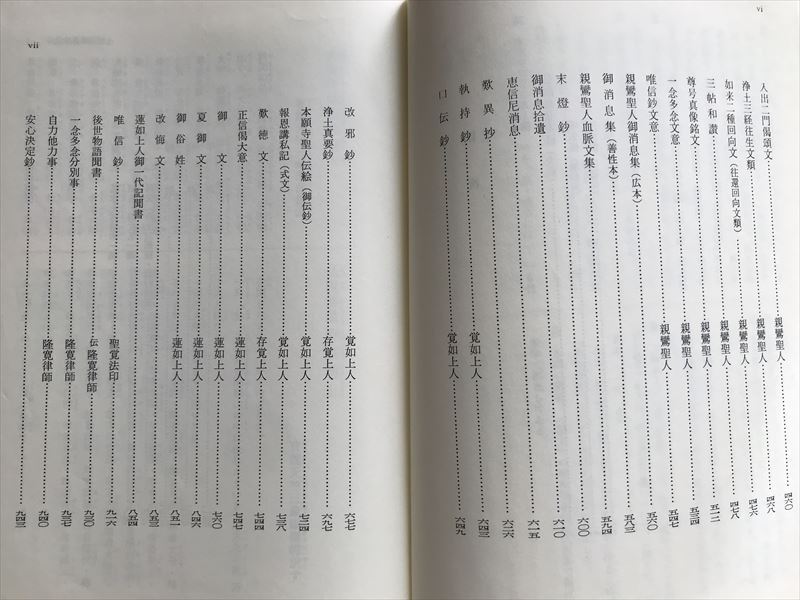 vi
入出二門偈頌文 親鸞聖人 四六〇
浄土三経往生文類 親鸞聖人 四六八
如来二種回向文（往還回向文類） 親鸞聖人 四七六
三帖和讃 親鸞聖人 四七八
尊号真像銘文 親鸞聖人 五一二
一念多念文意 親鸞聖人 五三四
唯信鈔文意 親鸞聖人 五四七
親鸞聖人御消息集（広本） 五六〇
御消息集（善性本） 五八三
親鸞聖人血脈文集 五九四
末燈鈔 六〇〇
御消息拾遺 六一〇
恵信尼消息 六一五
歎異抄 六二六
執持鈔 覚如上人 六四三
口伝鈔 覚如上人 六四九
vii
改邪鈔 覚如上人 六七七
浄土真要鈔 存覚上人 六九七
本願寺聖人伝絵（御伝鈔） 覚如上人 七二四
報恩講私記（式文） 覚如上人 七三八
歎徳文 存覚上人 七四四
正信偈大意 蓮如上人 七四七
御文 蓮如上人 七六〇
夏御文 蓮如上人 八四六
御俗姓 蓮如上人 八五一
改悔文 八五三
蓮如上人御一代記聞書 八五四
唯信鈔 聖覚法印 九一六
後世物語聞書 伝 隆寛律師 九三〇
一念多念分別事 隆寛律師 九三七
自力他力事 隆寛律師 九四〇
安心決定鈔 九四三